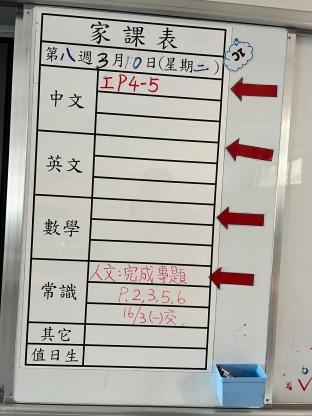 家課表
第八週3月10日(星期二)
中文 工P4-5
英文
數學
常識 人文:完成專題
P.2,3,5,6
16/3(一)交
其它
值日生
3C